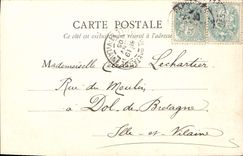 CARTE POSTALE
Ce côté est exclusivement réservé à l'adresse
Mademoiselle Lechartier
Rue du Moulin
à Dol de Bretagne
Ille et Vilaine